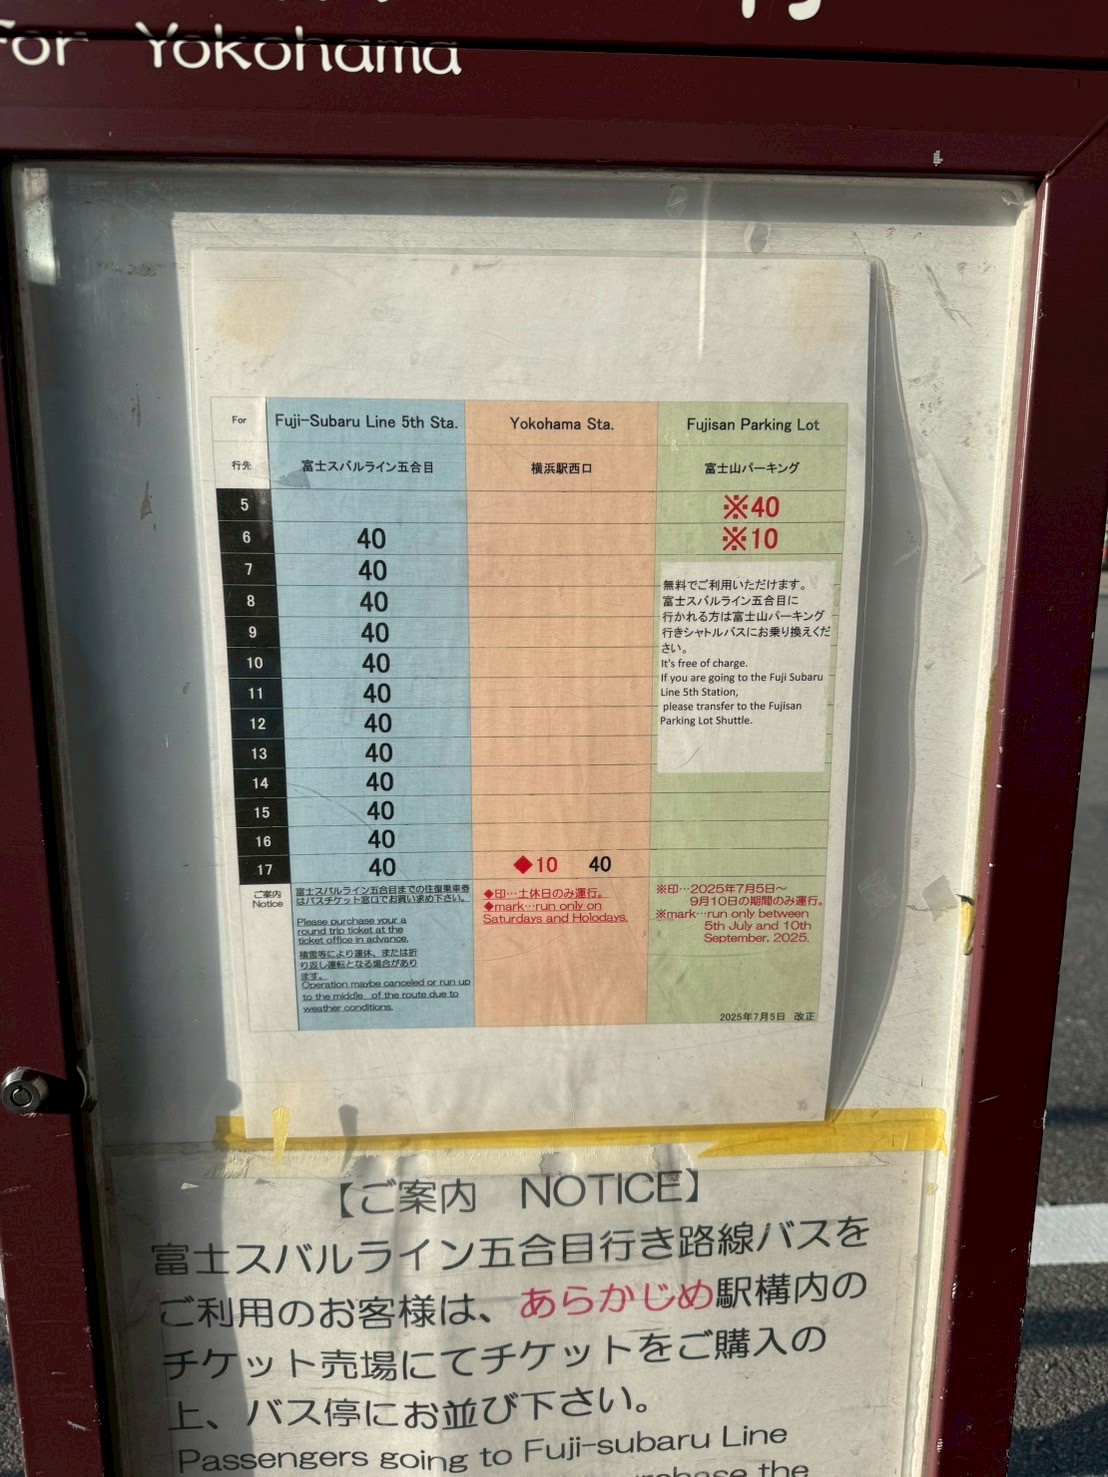 For Yokohama
For Fuji-Subaru Line 5th Sta. Yokohama Sta. Fujisan Parking Lot
行先 富士スバルライン五合目 横浜駅西口 富士山パーキング
5 ※40
6 40 ※10
7 40
8 40
9 40
10 40
11 40
12 40
13 40
14 40
15 40
16 40
17 40 ◆10 40
無料でご利用いただけます。
富士スバルライン五合目に
行かれる方は富士山パーキング
行きシャトルバスにお乗り換えくだ
さい。
It's free of charge.
If you are going to the Fuji Subaru
Line 5th Station,
please transfer to the Fujisan
Parking Lot Shuttle.
ご案内
Notice
富士スバルライン五合目までの往復乗車券
はバスチケット窓口でお買い求め下さい。
Please purchase your a
round trip ticket at the
ticket office in advance.
積雪等により運休、または折
り返し運転となる場合があり
ます。
Operation maybe canceled or run up
to the middle of the route due to
weather conditions.
◆印…土休日のみ運行。
◆mark…run only on
Saturdays and Holodays.
※印…2025年7月5日～
9月10日の期間のみ運行。
※mark…run only between
5th July and 10th
September, 2025.
2025年7月5日 改正
【ご案内 NOTICE】
富士スバルライン五合目行き路線バスを
ご利用のお客様は、あらかじめ駅構内の
チケット売場にてチケットをご購入の
上、バス停にお並び下さい。
Passengers going to Fuji-subaru Line
the